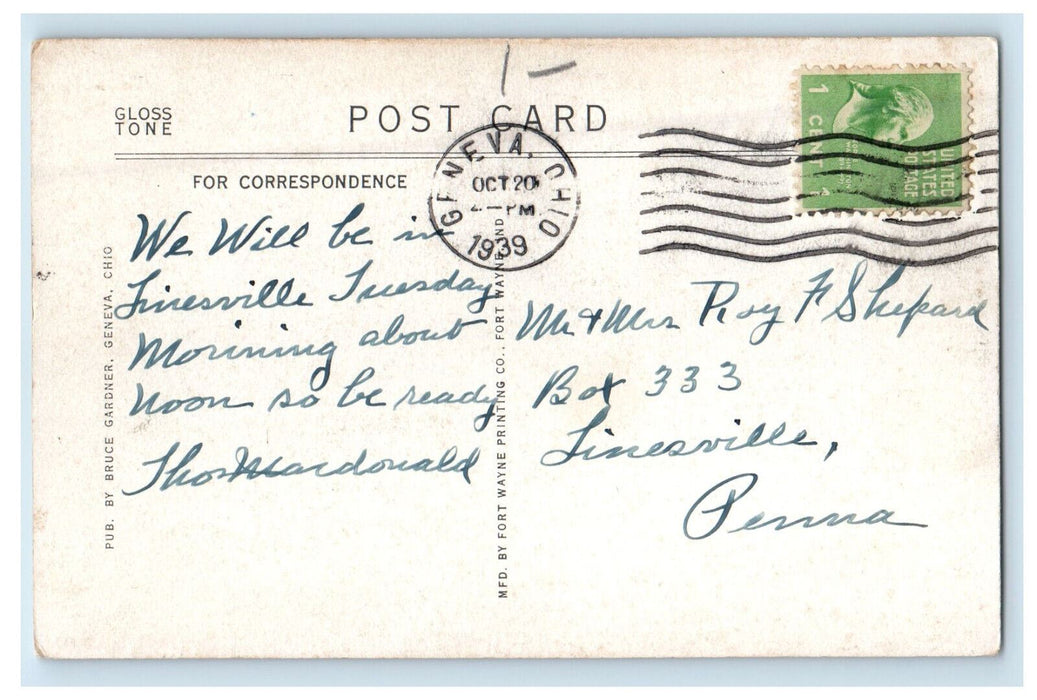 GLOSS
TONE
POST CARD
FOR CORRESPONDENCE
GENEVA, OHIO
OCT 20
PM
1939
1 CENT 1
UNITED
STATES
POSTAGE
We Will be in
Linesville Tuesday
Morining about
Noon so be ready
Thos Macdonald
Mr & Mrs Roy F Shepard
Box 333
Linesville,
Penna
PUB. BY BRUCE GARDNER, GENEVA, OHIO
MFD. BY FORT WAYNE PRINTING CO., FORT WAYNE, IND